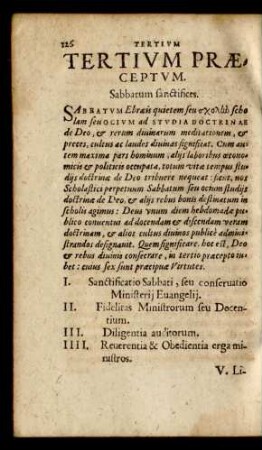 126 TERTIVM
TERTIVM PRÆ-
CEPTVM.
Sabbatum sanctifices.
SABBATVM Ebræis quietem seu σχολὴν scho
lam seu OCIVM ad STVDIA DOCTRINAE
de Deo, & rerum diuinarum meditationem, &
preces, cultus ac laudes diuinas significat. Cum au-
tem maxima pars hominum, alijs laboribus œcono-
micis & politicis occupata, totum vitæ tempus stu-
dijs doctrinæ de Deo tribuere nequeat: sicut, nos
Scholastici perpetuum Sabbatum seu ocium studijs
doctrinæ de Deo, & alijs rebus bonis destinatum in
scholis agimus: Deus vnum diem hebdomadæ pu-
blico conuentui ad docendam & discendam veram
doctrinam, & alios cultus diuinos publicè admini-
strandos designauit. Quem significare, hoc est, Deo
& rebus diuinis consecrare, in tertio præcepto iu-
bet: cuius sex sunt præcipuæ Virtutes.
I. Sanctificatio Sabbati, seu conseruatio
Ministerij Euangelij.
II. Fidelitas Ministrorum seu Docen-
tium.
III. Diligentia auditorum.
IIII. Reuerentia & Obedientia erga mi-
nistros.
V. Li-